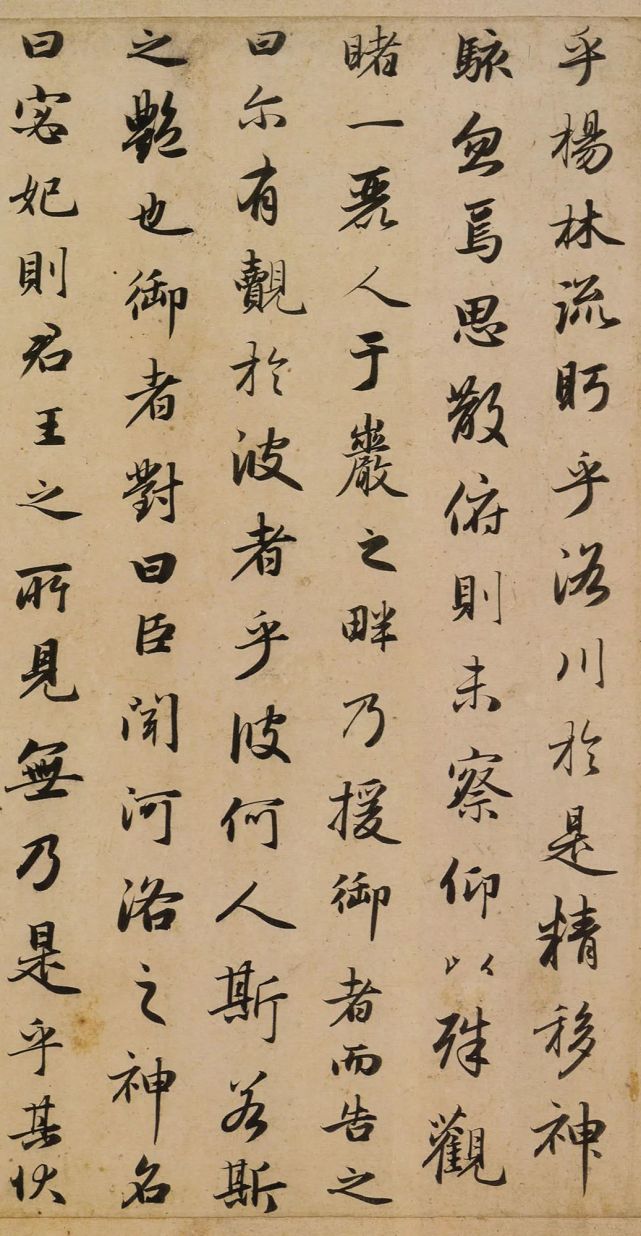 乎楊林流眄乎洛川於是精移神
駭忽焉思散俯則未察仰以殊觀
睹一麗人于巖之畔乃援御者而告之
曰尔有覿於彼者乎彼何人斯若斯
之艷也御者對曰臣聞河洛之神名
曰宓妃則君王之所見無乃是乎其狀